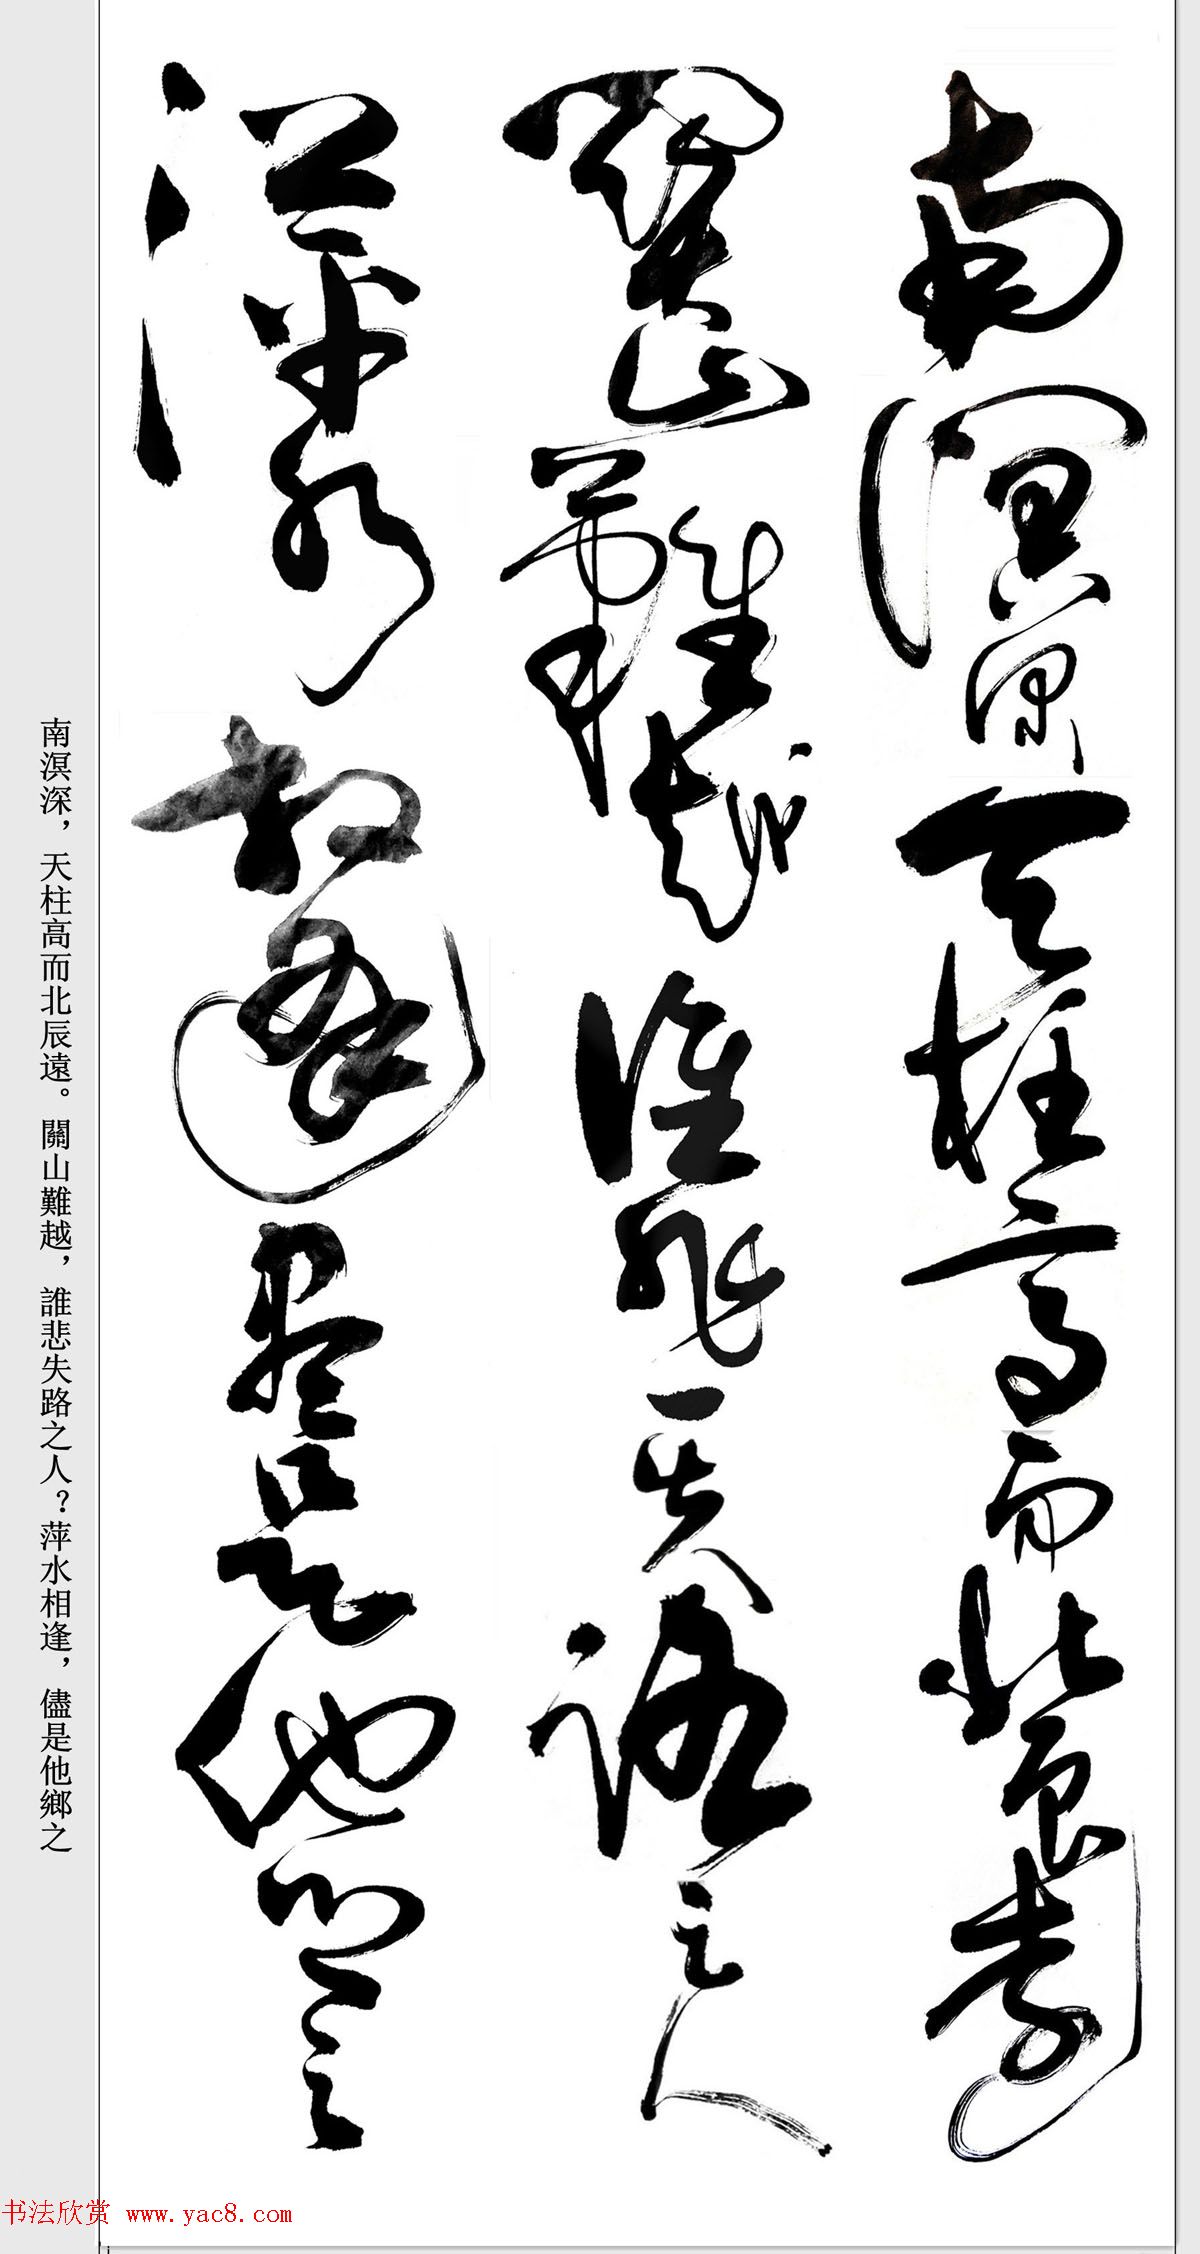 南溟深天柱高而北辰遠
關山難越誰悲失路之人
萍水相逢盡是他鄉之
南溟深，天柱高而北辰遠。關山難越，誰悲失路之人？萍水相逢，儘是他鄉之
书法欣赏 www.yac8.com